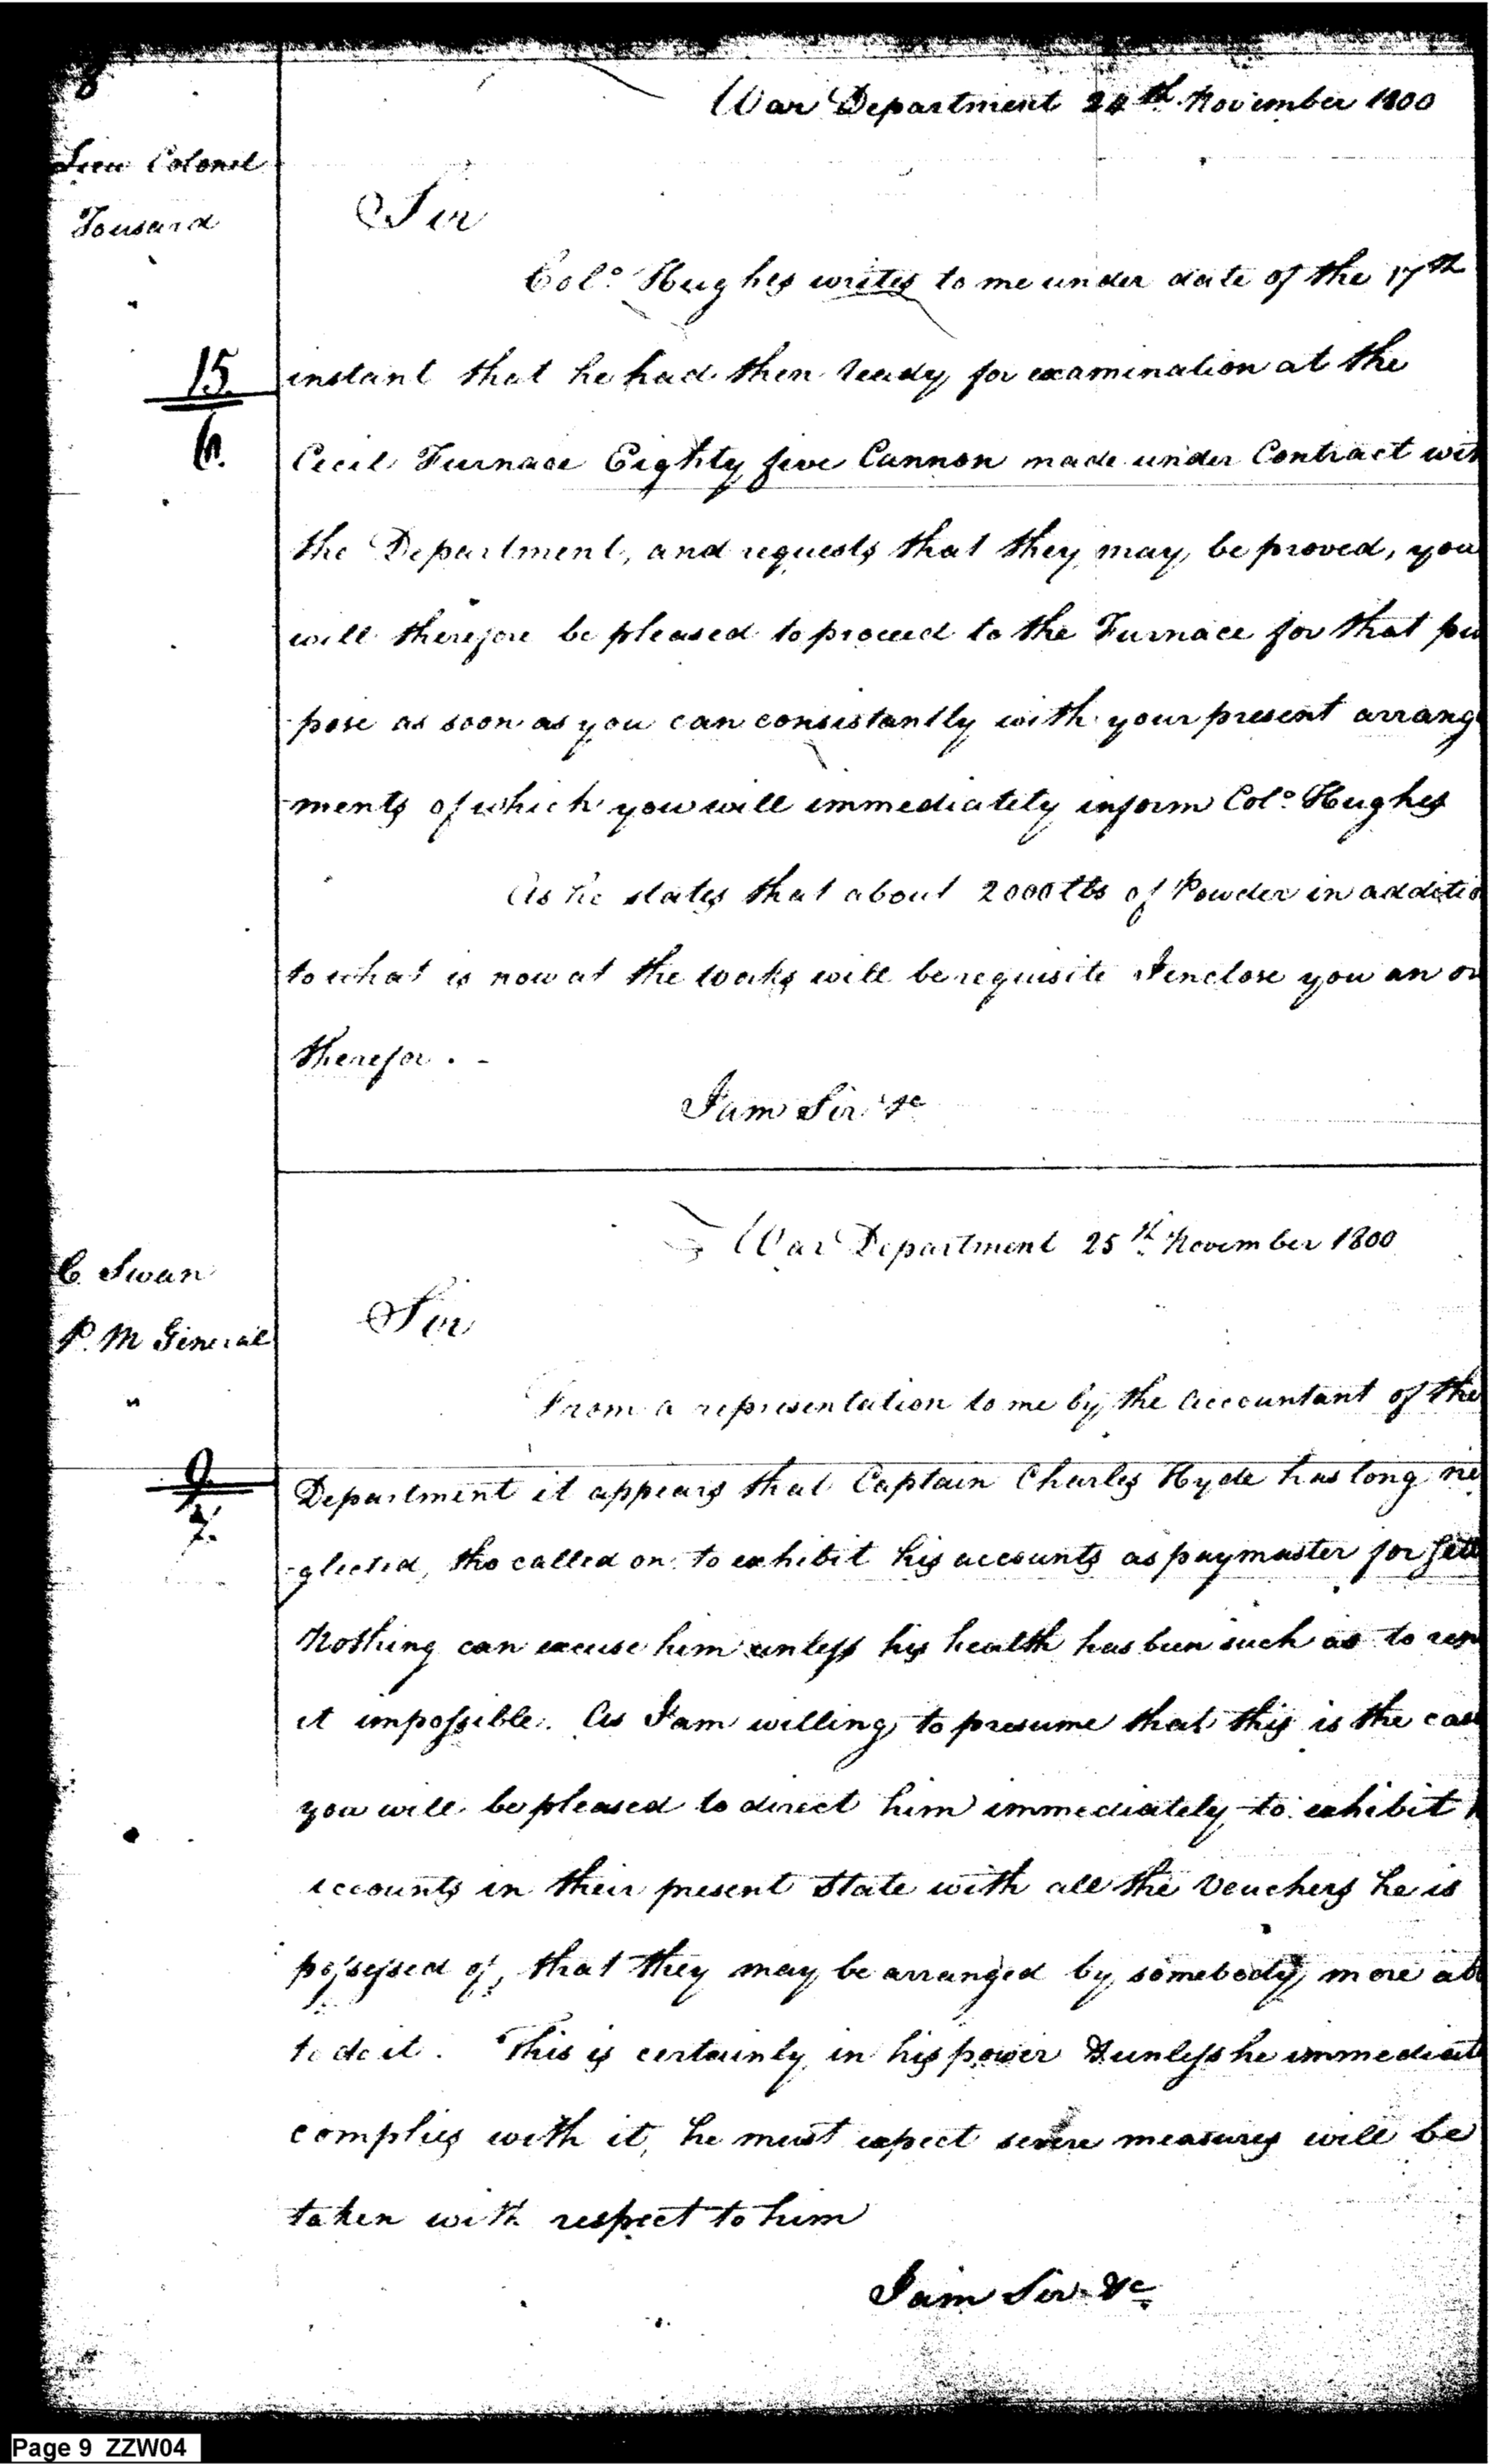 8
War Department 24th November 1800
Lieu Colonel
Tousard
Sir
Colo. Hughes writes to me under date of the 17th
15
instant that he had then ready for examination at the
6.
Cecil Furnace Eighty five Cannon made under Contract wit
the Department, and requests that they may be proved, you
will therefore be pleased to proceed to the Furnace for that pu
pose as soon as you can consistantly with your present arrang
-ments of which you will immediately inform Colo. Hughes
As he states that about 2000 lbs of Powder in additio
to what is now at the works will be requisite I enclose you an or
therefor. -
I am Sir &c
War Department 25th November 1800
C. Swan
P. M General
Sir
"
From a representation to me by the accountant of the
9
Department it appears that Captain Charles Hyde has long ne
7.
-glected, tho called on to exhibit his accounts as paymaster for Sett
Nothing can excuse him unless his health has been such as to ren
it impossible. As I am willing to presume that this is the cas
you will be pleased to direct him immediately to exhibit h
accounts in their present State with all the Vouchers he is
possessed of, that they may be arranged by somebody more ab
to do it. This is certainly in his power & unless he immediat
complies with it, he must expect severe measures will be
taken with respect to him
I am Sir &c
Page 9 ZZW04